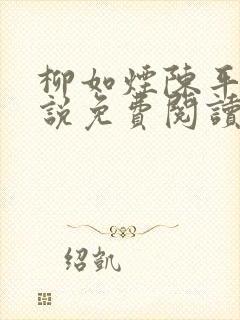 柳如煙陳平
說免費閱讀
绍凯